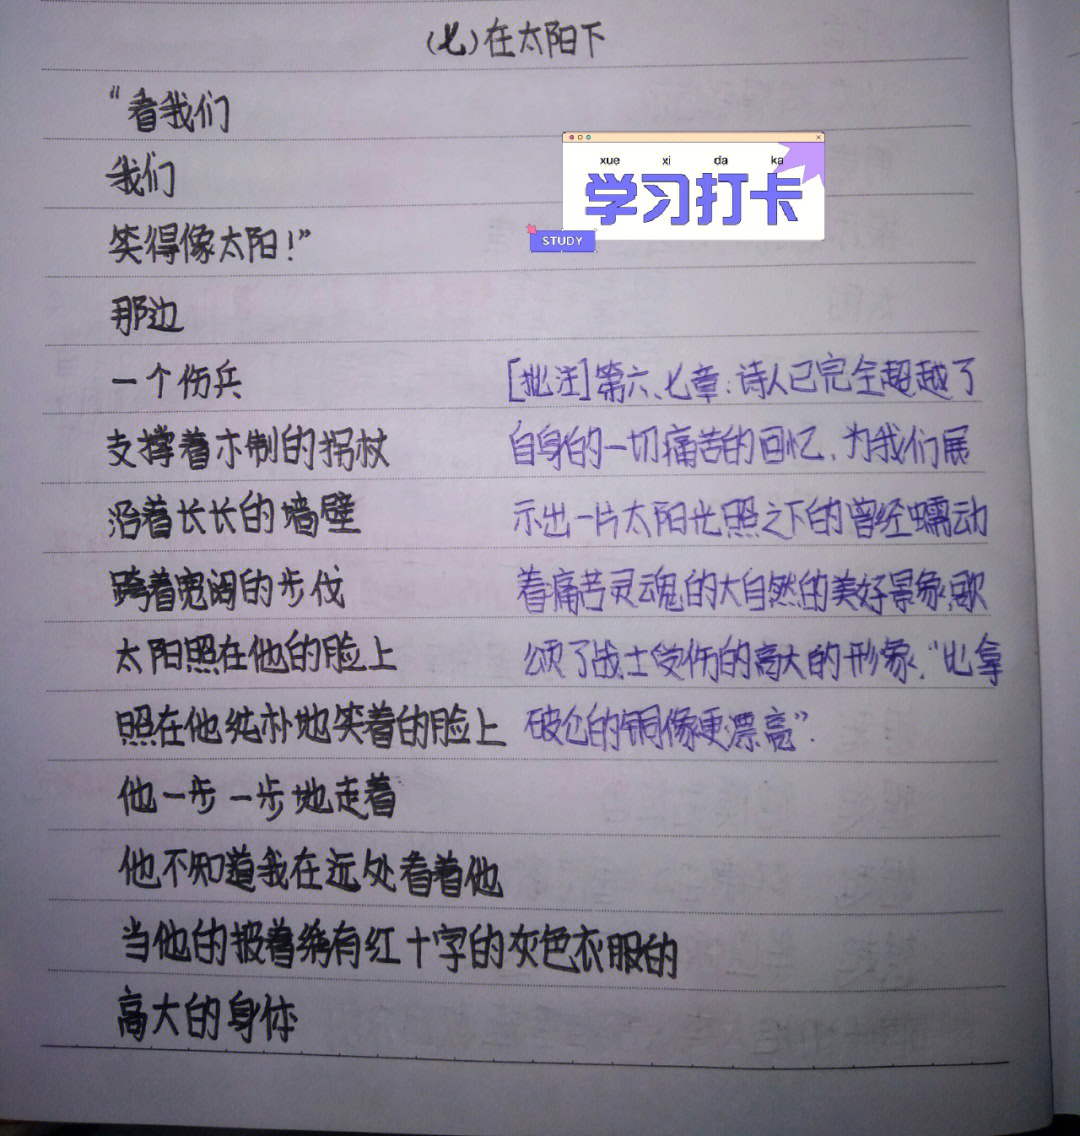 (七)在太阳下
“看我们
我们
笑得像太阳！”
xue xi da ka
学习打卡
STUDY
那边
一个伤兵
支撑着木制的拐杖
沿着长长的墙壁
跨着宽阔的步伐
太阳照在他的脸上
照在他纯朴地笑着的脸上
他一步一步地走着
他不知道我在远处看着他
当他的披着绣有红十字的灰色衣服的
高大的身体
[批注]第六、七章：诗人已完全超越了
自身的一切痛苦的回忆，为我们展
示出一片太阳光照之下的曾经蠕动
着痛苦灵魂的大自然的美好景象，歌
颂了战士受伤的高大的形象，“比拿
破仑的铜像更漂亮”.